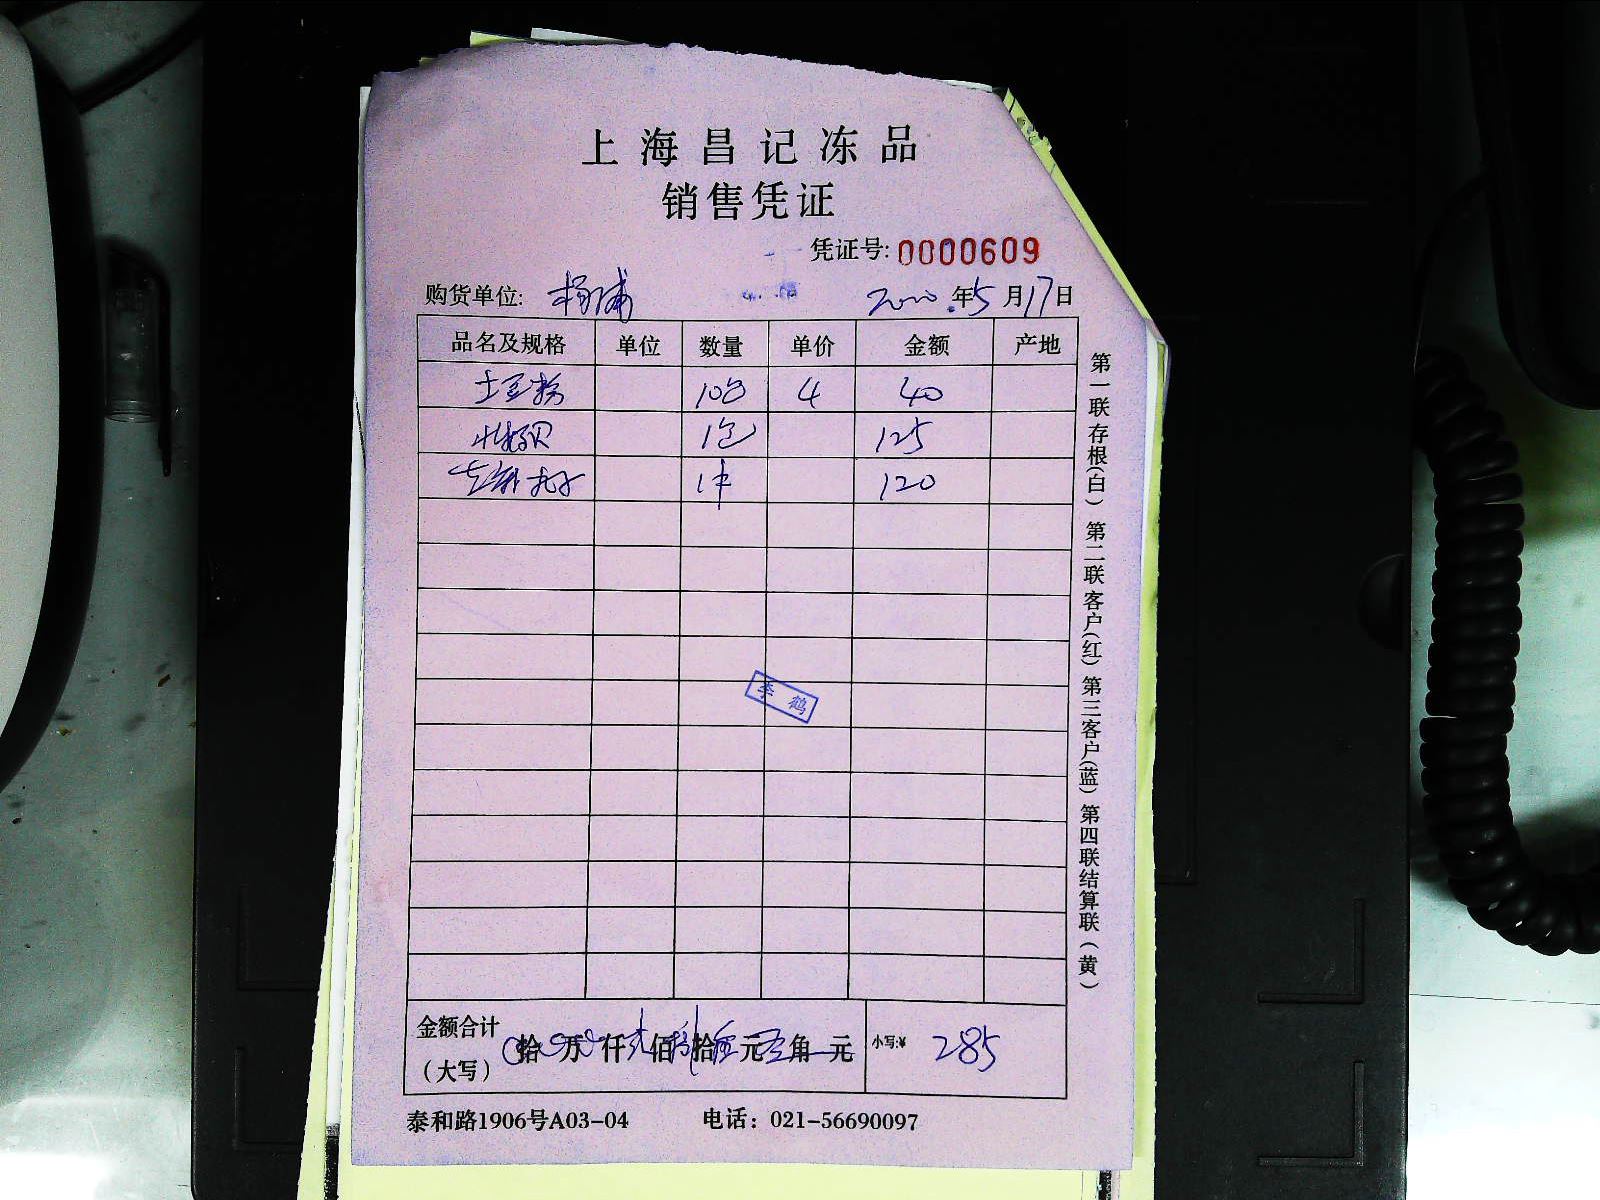 上海昌记冻品
销售凭证
凭证号: 0000609
购货单位: 杨浦 年5月17日
品名及规格 单位 数量 单价 金额 产地
土豆粉 10包 4 40
1包 125
1件 120
李鹤
金额合计(大写) 拾 万 仟 佰 拾 元 角 元 小写:¥ 285
泰和路1906号A03-04 电话：021-56690097
第一联存根(白) 第二联客户(红) 第三客户(蓝) 第四联结算联(黄)